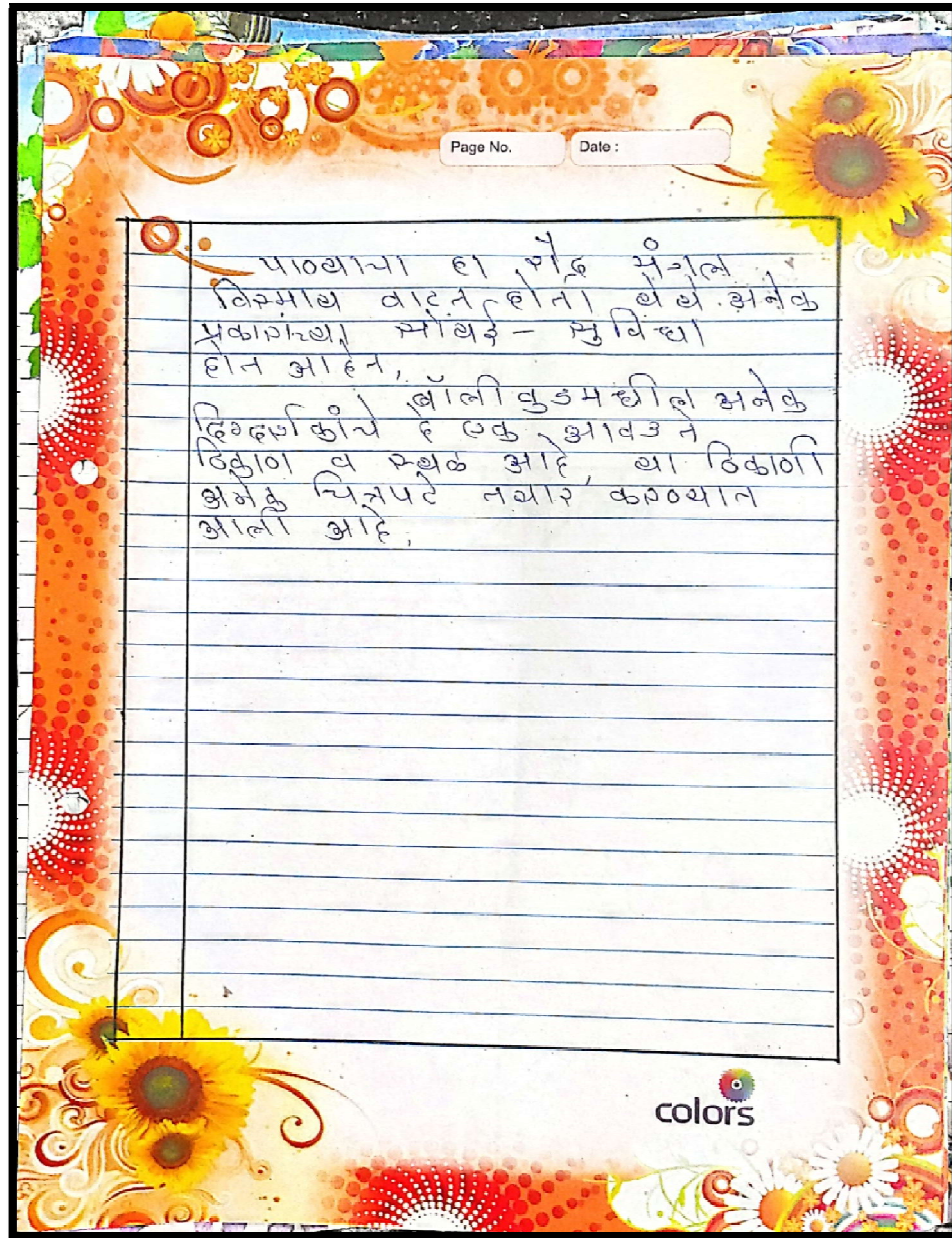 Page No. Date :
पाण्याचा हा रौद्र मंगल
विस्माय वाटत होता येथे अनेक
प्रकारच्या सोयई - सुविधा
होत आहेत,
बॉलीवुडमधील अनेक
दिग्दर्शकांचे हे एक आवडते
ठिकाण व स्थळ आहे, या ठिकाणी
अनेक चित्रपटे तयार करण्यात
आली आहे,
colors